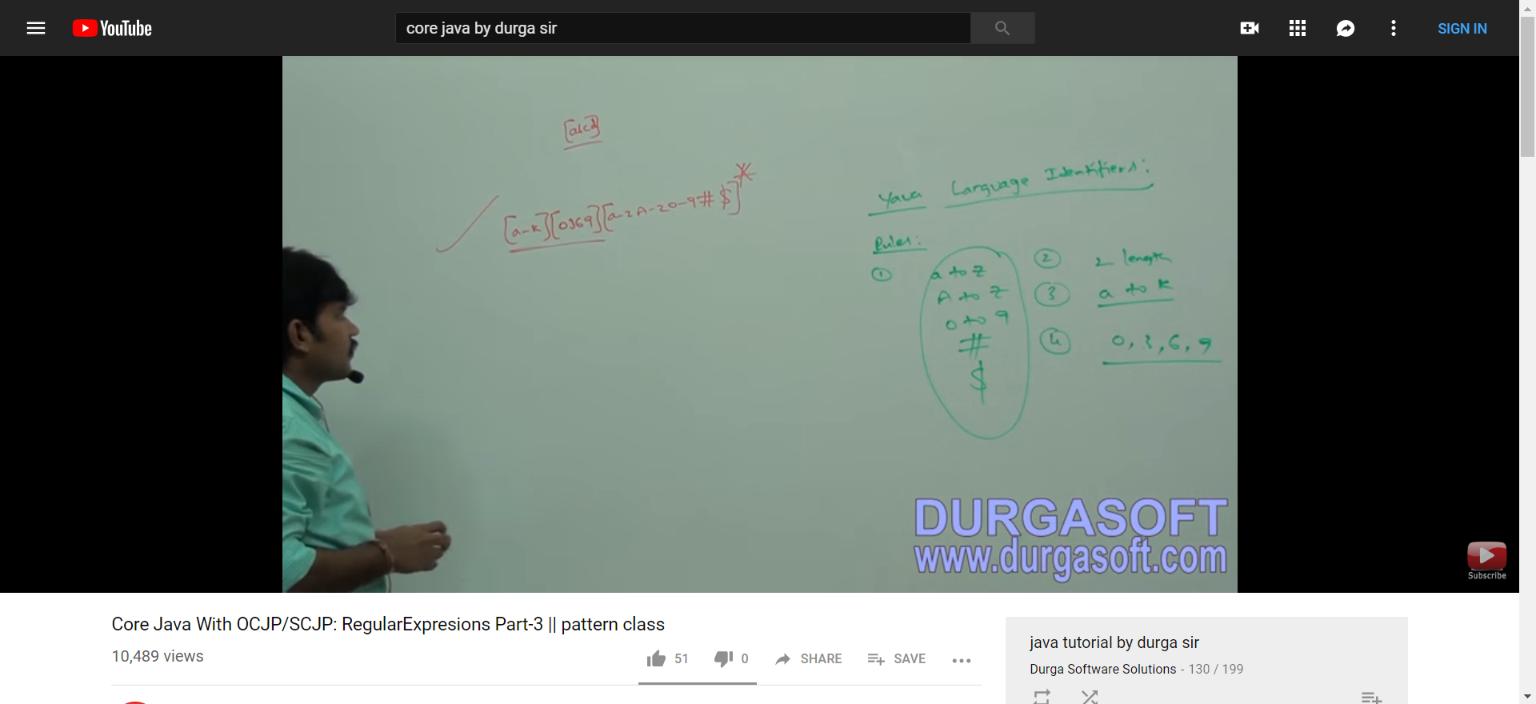 YouTube
core java by durga sir
SIGN IN
[a-k][0369][a-zA-Z0-9#$]*
Yava Language Identifiers:
Rules:
① a to z
A to Z
0 to 9
#
$
② 2 length
③ a to k
④ 0, 3, 6, 9
DURGASOFT
www.durgasoft.com
Subscribe
Core Java With OCJP/SCJP: RegularExpresions Part-3 || pattern class
10,489 views
51
0
SHARE
SAVE
java tutorial by durga sir
Durga Software Solutions - 130 / 199